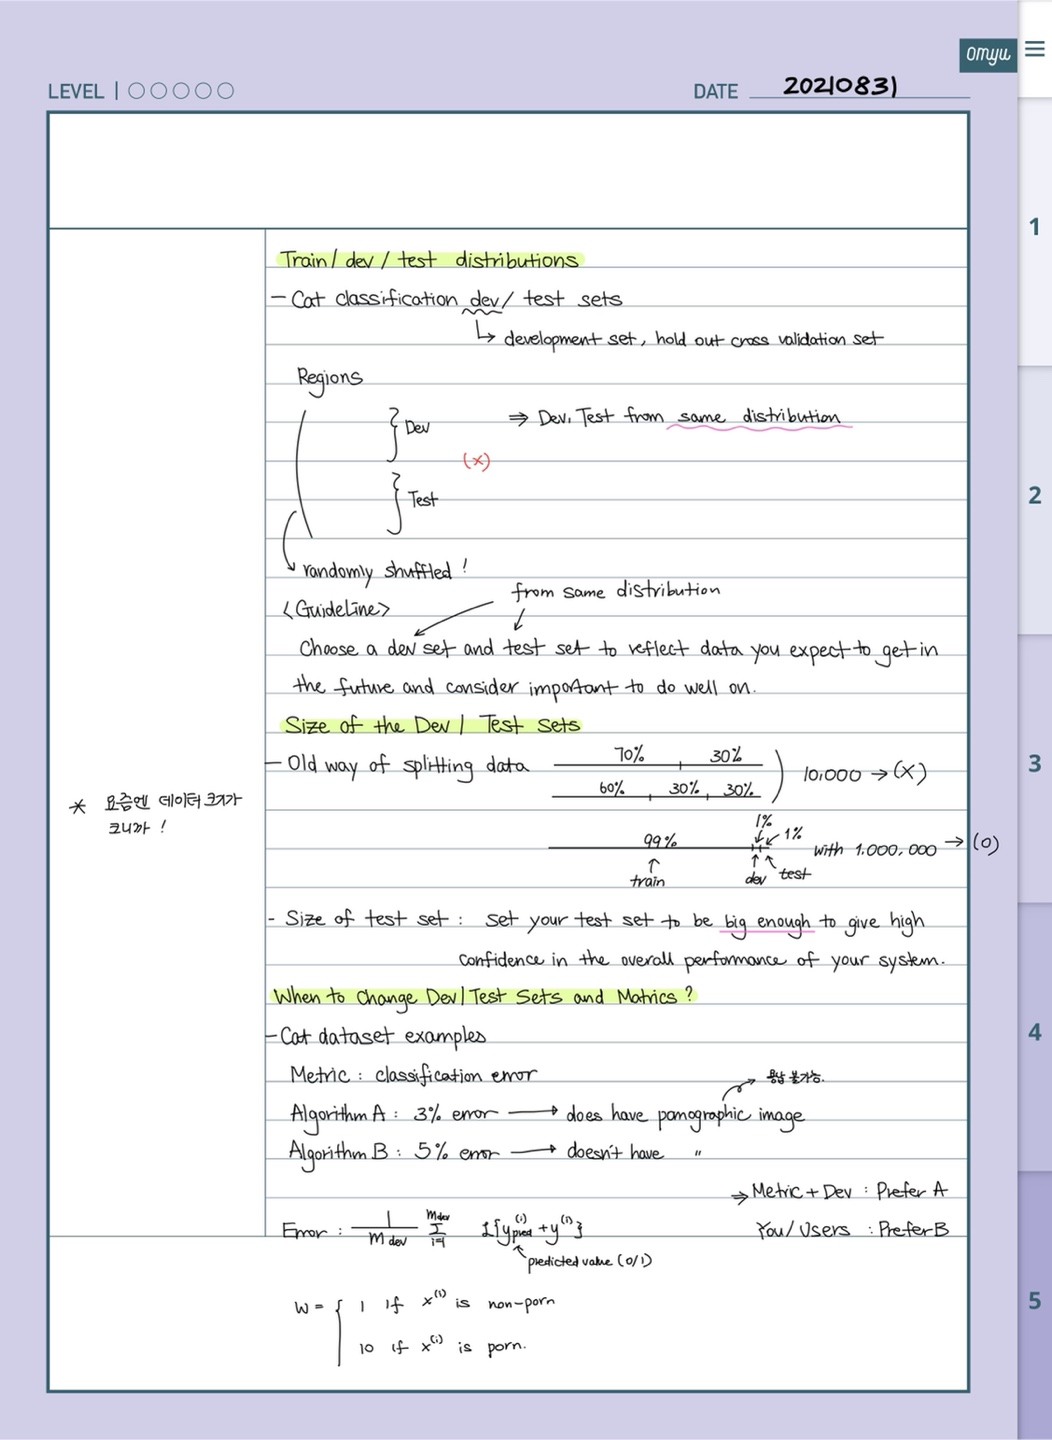 omyu
LEVEL
DATE 20210831
1
2
3
4
5
Train/dev/test distributions
- Cat classification dev/test sets
↳ development set, hold out cross validation set
Regions
Dev
⇒ Dev, Test from same distribution
(x)
Test
randomly shuffled!
from same distribution
<Guideline>
Choose a dev set and test set to reflect data you expect to get in
the future and consider important to do well on.
Size of the Dev/Test Sets
- Old way of splitting data
70% 30%
60% 30% 30%
10,000 → (X)
* 요즘엔 데이터 크기가
크니까!
99% 1% 1%
with 1.000.000 → (O)
train dev test
- Size of test set : set your test set to be big enough to give high
confidence in the overall performance of your system.
When to Change Dev/Test Sets and Matrics?
- Cat dataset examples
Metric : classification error
용납 불가능.
Algorithm A : 3% error → does have pornographic image
Algorithm B : 5% error → doesn't have "
⇒ Metric + Dev : Prefer A
You/Users : Prefer B
Error : 1/m dev Σ i=1 Mdev 1{y pred (i) + y (i)}
predicted value (0/1)
W = { 1 if x(i) is non-porn
10 if x(i) is porn.